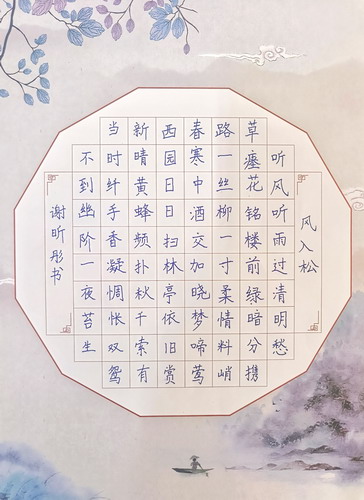 风入松
听风听雨过清明愁
草瘗花铭楼前绿暗分携
路一丝柳一寸柔情料峭
春寒中酒交加晓梦啼莺
西园日日扫林亭依旧赏
新晴黄蜂频扑秋千索有
当时纤手香凝惆怅双鸳
不到幽阶一夜苔生
谢昕彤书